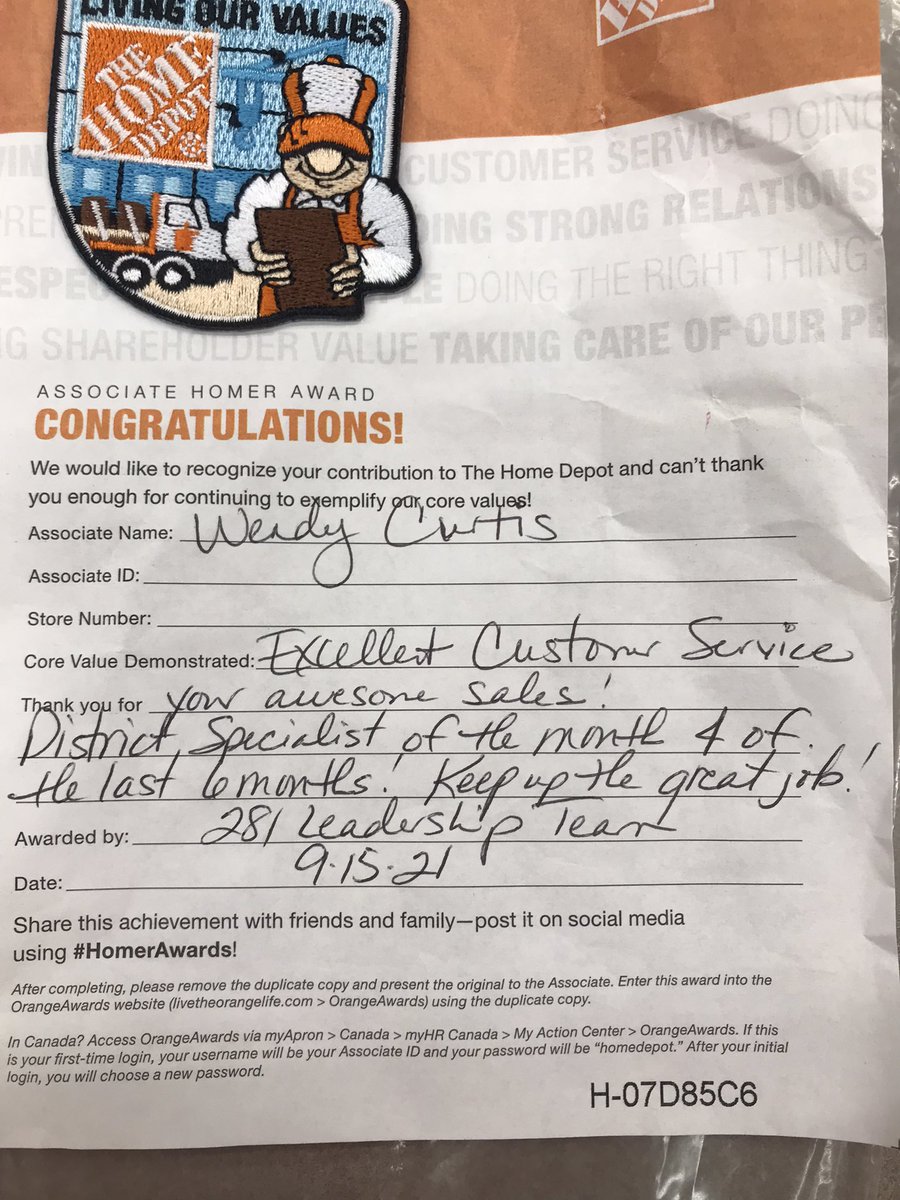 LIVING OUR VALUES
THE
HOME
DEPOT
CUSTOMER SERVICE DOING
ING STRONG RELATIONS
ESPE LE DOING THE RIGHT THING
G SHAREHOLDER VALUE TAKING CARE OF OUR PE
ASSOCIATE HOMER AWARD
CONGRATULATIONS!
We would like to recognize your contribution to The Home Depot and can't thank
you enough for continuing to exemplify our core values!
Associate Name: Wendy Curtis
Associate ID:
Store Number:
Core Value Demonstrated: Excellent Customer Service
Thank you for your awesome sales!
District Specialist of the month 4 of
the last 6 months! Keep up the great job!
Awarded by: 281 Leadership Team
Date: 9.15.21
Share this achievement with friends and family—post it on social media
using #HomerAwards!
After completing, please remove the duplicate copy and present the original to the Associate. Enter this award into the
OrangeAwards website (livetheorangelife.com > OrangeAwards) using the duplicate copy.
In Canada? Access OrangeAwards via myApron > Canada > myHR Canada > My Action Center > OrangeAwards. If this
is your first-time login, your username will be your Associate ID and your password will be "homedepot." After your initial
login, you will choose a new password.
H-07D85C6